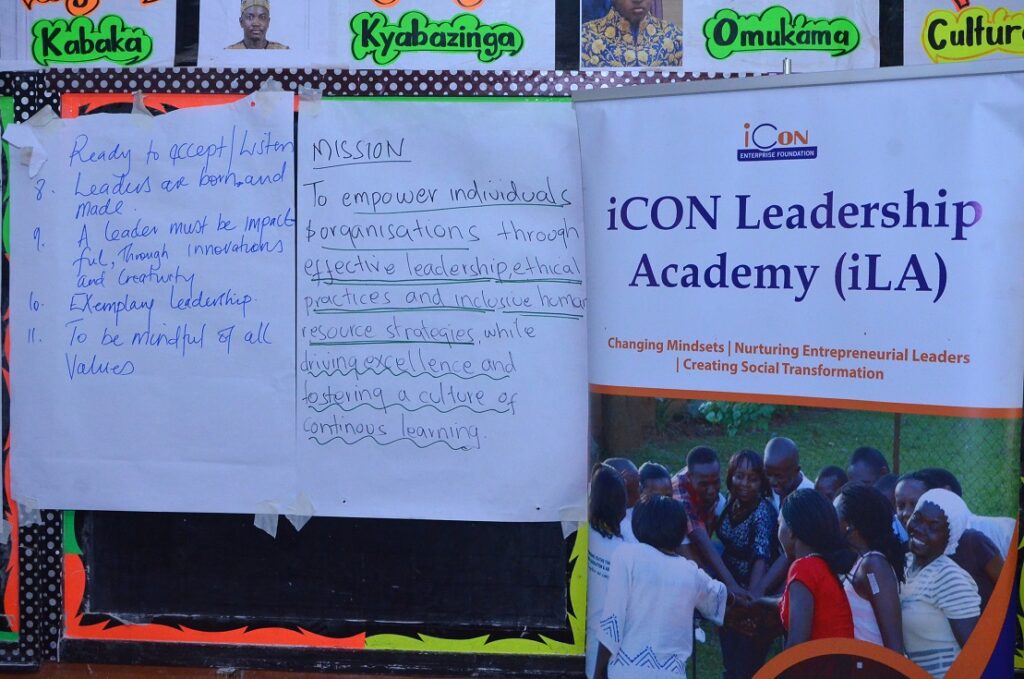 Kabaka
Kyabazinga
Omukama
Ready to accept/Listen
8. Leaders are born and
made.
9. A leader must be impact
ful, Through innovations
and Creativity
10. Exemplary leadership.
11. To be mindful of all
Values
MISSION
To empower individuals
& organisations through
effective leadership, ethical
practices and inclusive human
resource strategies, while
driving excellence and
fostering a culture of
continous learning.
iCON
ENTERPRISE FOUNDATION
iCON Leadership
Academy (iLA)
Changing Mindsets | Nurturing Entrepreneurial Leaders
| Creating Social Transformation